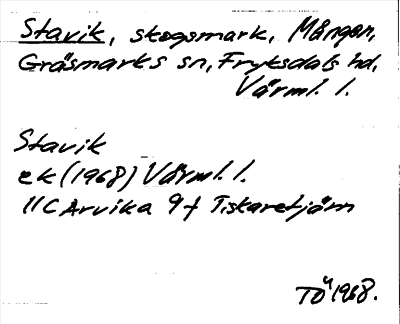 Stavik, skogsmark, Mången,
Gräsmarks sn, Fryksdals hd,
Värml. l.
Stavik
ek (1968) Värml. l.
11C Arvika 9f Tiskaretjärn
TÖ 1968.